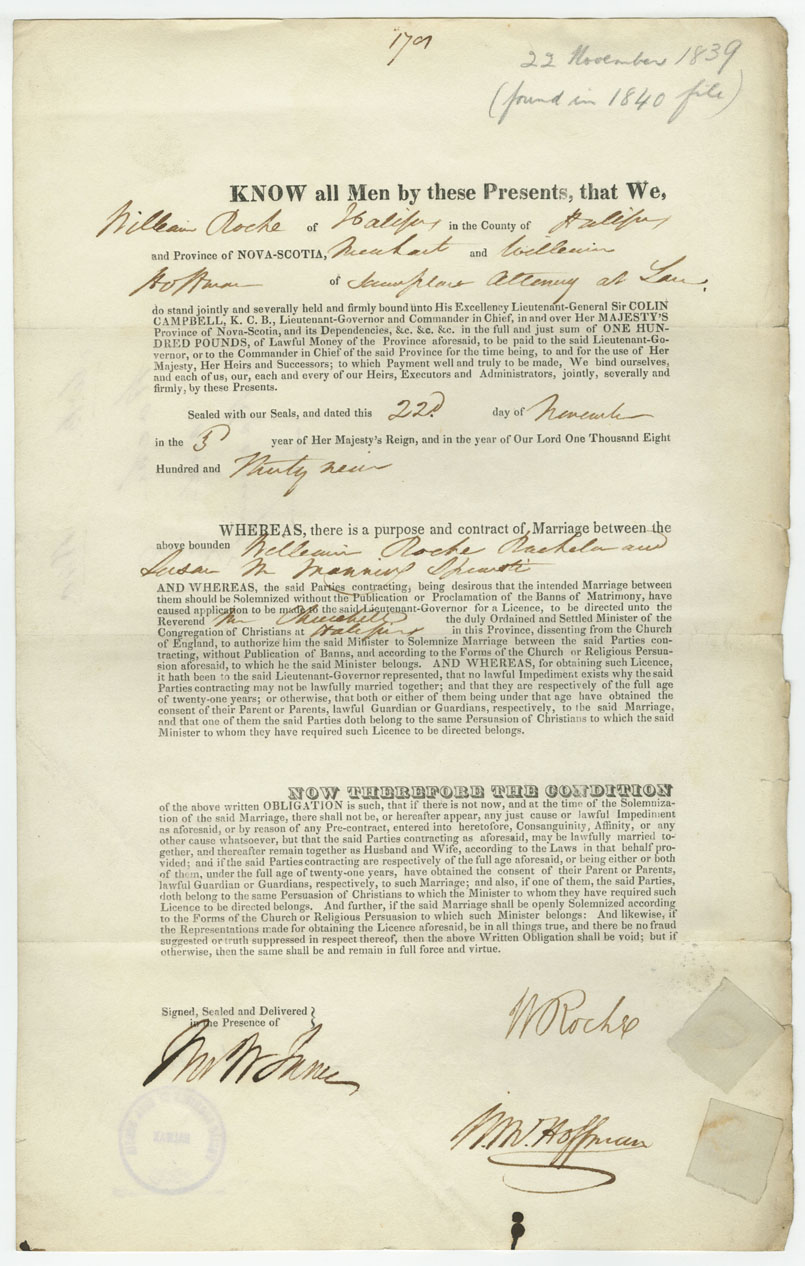 22 November 1839
(found in 1840 file)
KNOW all Men by these Presents, that We,
William Roche of Halifax in the County of Halifax
and Province of NOVA-SCOTIA, Merchant and William
Hoffman of same place Attorney at Law.
do stand jointly and severally held and firmly bound unto His Excellency Lieutenant-General Sir COLIN
CAMPBELL, K. C. B., Lieutenant-Governor and Commander in Chief, in and over Her MAJESTY'S
Province of Nova-Scotia, and its Dependencies, &c. &c. &c. in the full and just sum of ONE HUN-
DRED POUNDS, of Lawful Money of the Province aforesaid, to be paid to the said Lieutenant-Go-
vernor, or to the Commander in Chief of the said Province for the time being, to and for the use of Her
Majesty, Her Heirs and Successors; to which Payment well and truly to be made, We bind ourselves,
and each of us, our, each and every of our Heirs, Executors and Administrators, jointly, severally and
firmly, by these Presents.
Sealed with our Seals, and dated this 22d. day of November
in the 3d year of Her Majesty's Reign, and in the year of Our Lord One Thousand Eight
Hundred and Thirty nine
WHEREAS, there is a purpose and contract of Marriage between the
above bounden William Roche Bachelor and
Susan M Manning Spinster
AND WHEREAS, the said Parties contracting, being desirous that the intended Marriage between
them should be Solemnized without the Publication or Proclamation of the Banns of Matrimony, have
caused application to be made to the said Lieutenant-Governor for a Licence, to be directed unto the
Reverend Mr Churchill the duly Ordained and Settled Minister of the
Congregation of Christians at Halifax in this Province, dissenting from the Church
of England, to authorize him the said Minister to Solemnize Marriage between the said Parties con-
tracting, without Publication of Banns, and according to the Forms of the Church or Religious Persua-
sion aforesaid, to which he the said Minister belongs. AND WHEREAS, for obtaining such Licence,
it hath been to the said Lieutenant-Governor represented, that no lawful Impediment exists why the said
Parties contracting may not be lawfully married together; and that they are respectively of the full age
of twenty-one years; or otherwise, that both or either of them being under that age have obtained the
consent of their Parent or Parents, lawful Guardian or Guardians, respectively, to the said Marriage,
and that one of them the said Parties doth belong to the same Persuasion of Christians to which the said
Minister to whom they have required such Licence to be directed belongs.
NOW THEREFORE THE CONDITION
of the above written OBLIGATION is such, that if there is not now, and at the time of the Solemniza-
tion of the said Marriage, there shall not be, or hereafter appear, any just cause or lawful Impediment
as aforesaid, or by reason of any Pre-contract, entered into heretofore, Consanguinity, Affinity, or any
other cause whatsoever, but that the said Parties contracting as aforesaid, may be lawfully married to-
gether, and thereafter remain together as Husband and Wife, according to the Laws in that behalf pro-
vided; and if the said Parties contracting are respectively of the full age aforesaid, or being either or both
of them, under the full age of twenty-one years, have obtained the consent of their Parent or Parents,
lawful Guardian or Guardians, respectively, to such Marriage; and also, if one of them, the said Parties,
doth belong to the same Persuasion of Christians to which the Minister to whom they have required such
Licence to be directed belongs. And further, if the said Marriage shall be openly Solemnized according
to the Forms of the Church or Religious Persuasion to which such Minister belongs: And likewise, if
the Representations made for obtaining the Licence aforesaid, be in all things true, and there be no fraud
suggested or truth suppressed in respect thereof, then the above Written Obligation shall be void; but if
otherwise, then the same shall be and remain in full force and virtue.
Signed, Sealed and Delivered }
in the Presence of
W Roche
W. Hoffman
HALIFAX